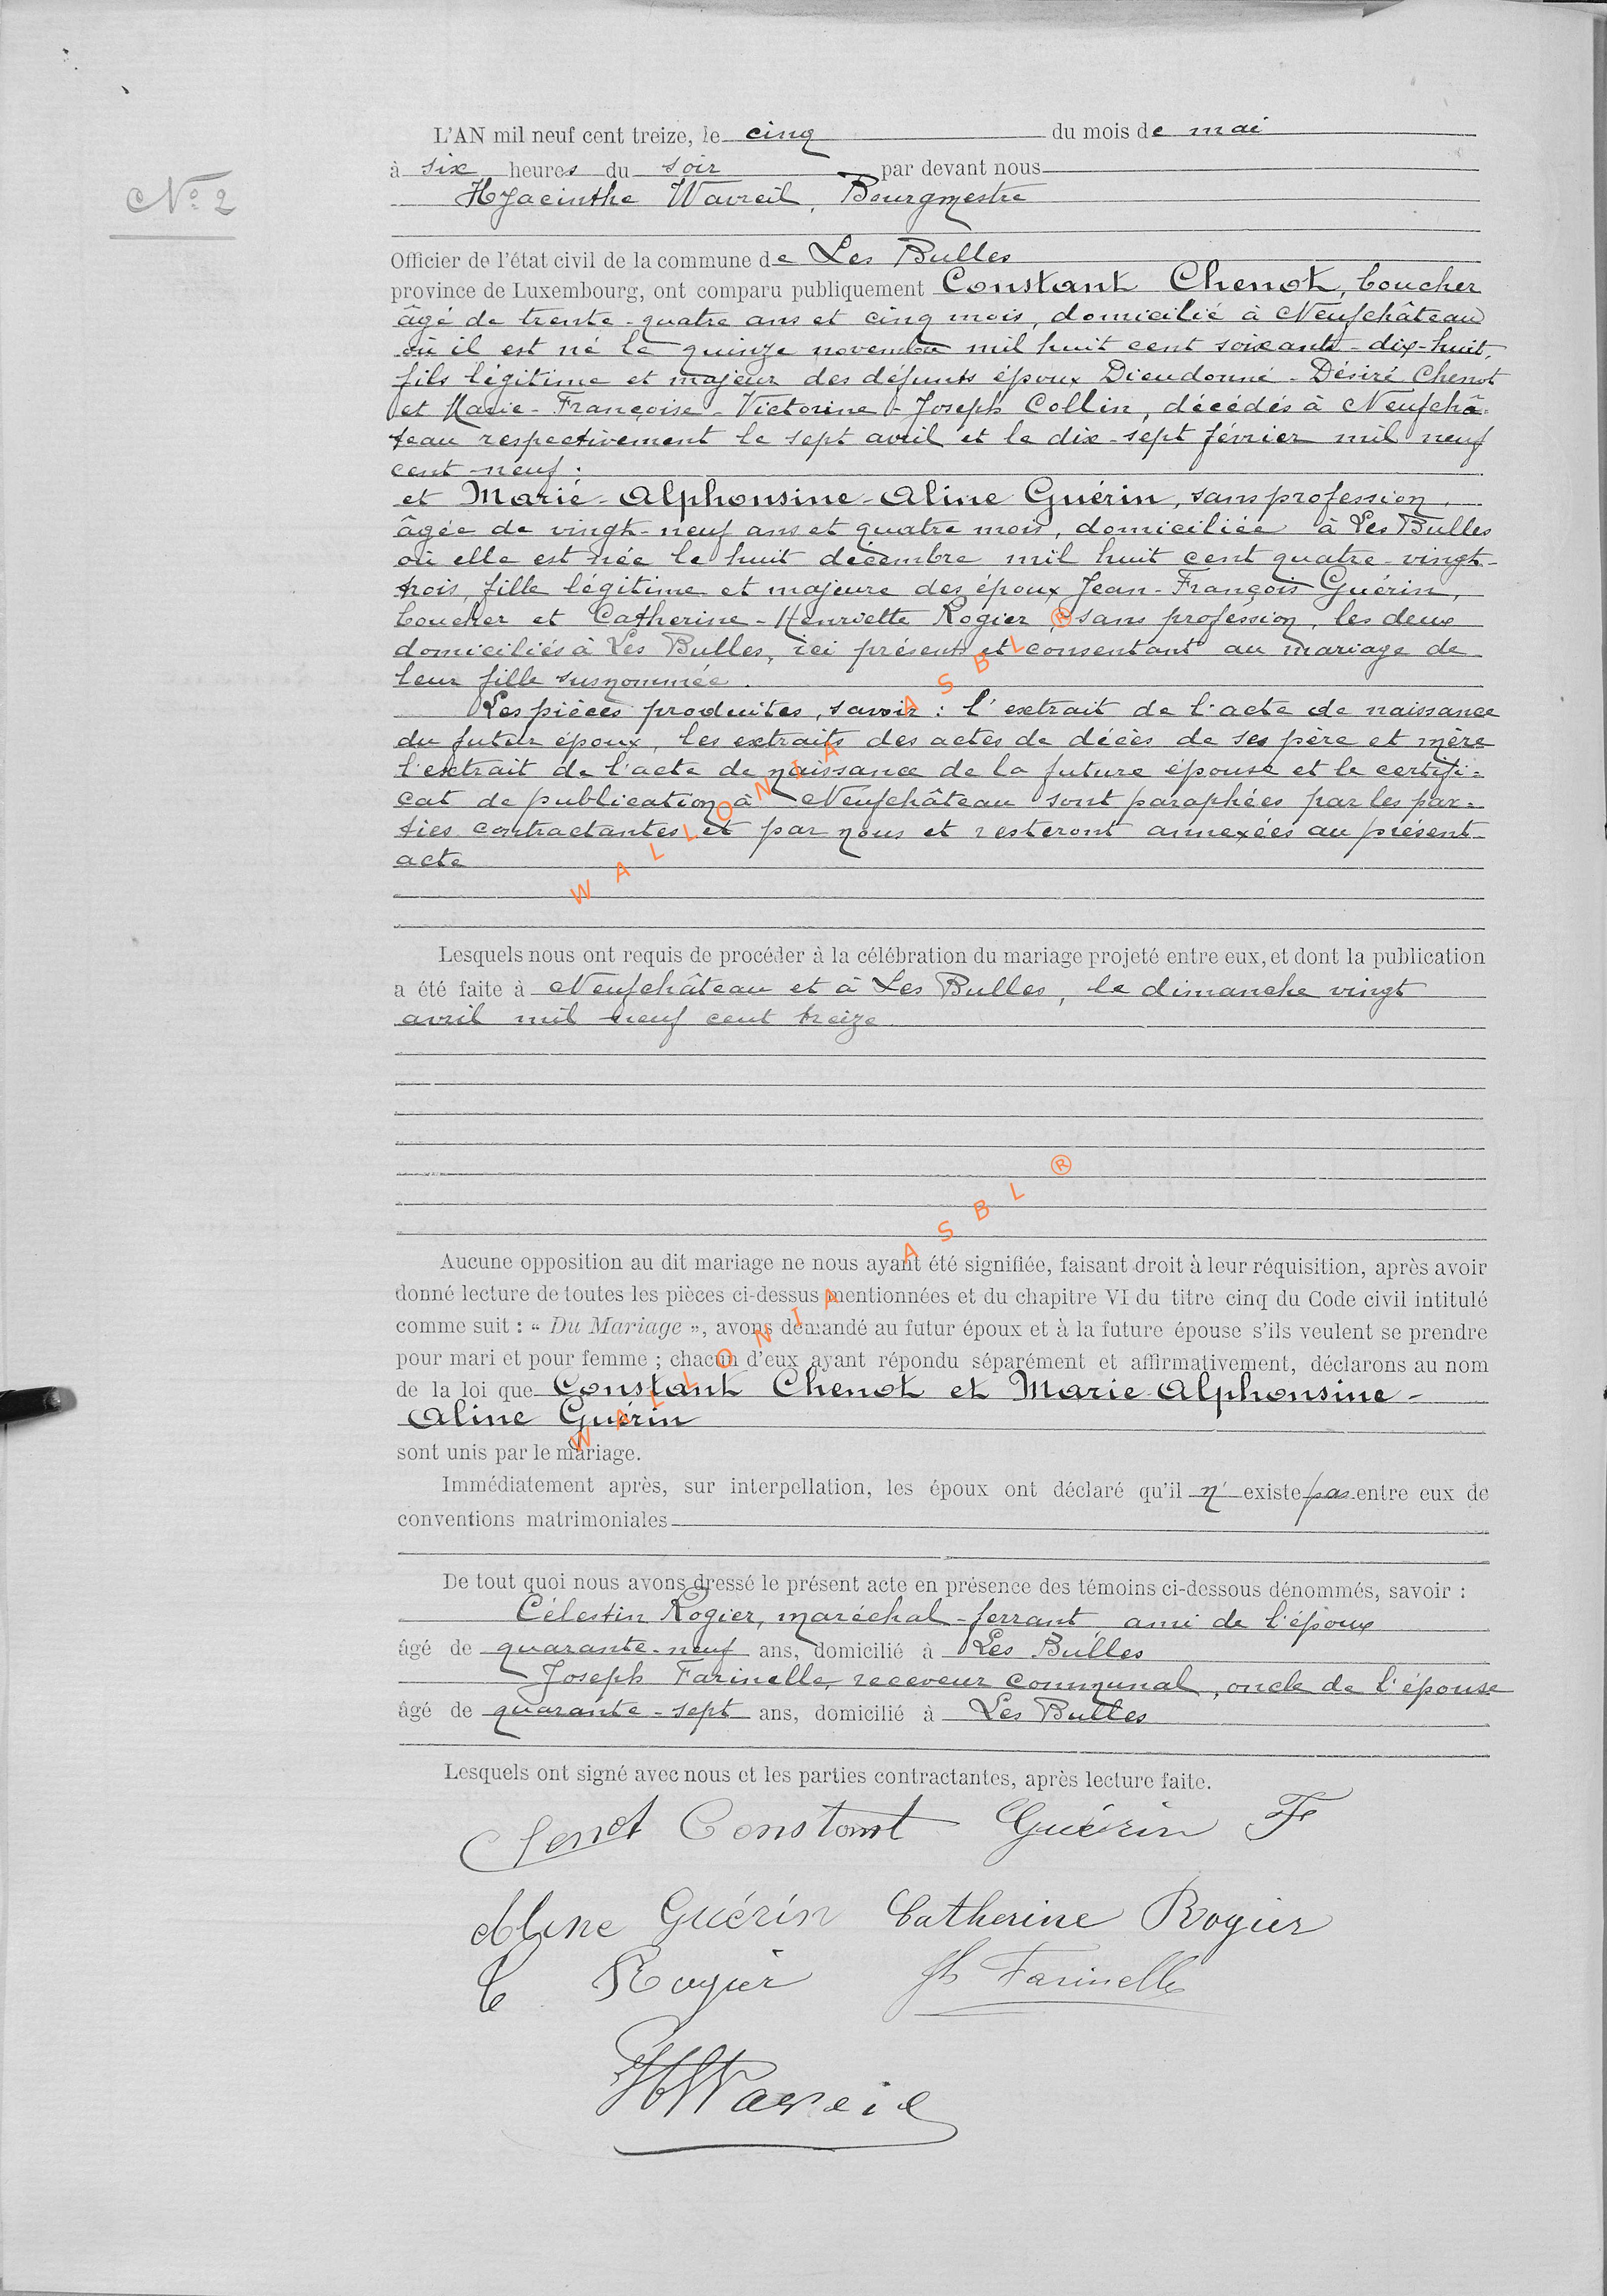 N° 2
L'AN mil neuf cent treize, le cinq du mois de mai
à six heures du soir par devant nous
Hyacinthe Wavreil, Bourgmestre
Officier de l'état civil de la commune de Les Bulles
province de Luxembourg, ont comparu publiquement Constant Chenot, boucher
âgé de trente-quatre ans et cinq mois, domicilié à Neufchâteau
où il est né le quinze novembre mil huit cent soixante-dix-huit,
fils légitime et majeur des défunts époux Dieudonné-Désiré Chenot
et Marie-Françoise-Victorine-Joseph Collin, décédés à Neufchâ=
teau respectivement le sept avril et le dix-sept février mil neuf
cent-neuf.
et Marie-Alphonsine-Aline Guérin, sans profession,
âgée de vingt-neuf ans et quatre mois, domiciliée à Les Bulles
où elle est née le huit décembre mil huit cent quatre-vingt-
trois, fille légitime et majeure des époux Jean-François Guérin,
boucher et Catherine-Henriette Rogier, sans profession, les deux
domiciliés à Les Bulles, ici présents et consentant au mariage de
leur fille susnommée.
Les pièces produites, savoir : l'extrait de l'acte de naissance
du futur époux, les extraits des actes de décès de ses père et mère
l'extrait de l'acte de naissance de la future épouse et le certifi=
cat de publication à Neufchâteau sont paraphées par les par=
ties contractantes et par nous et resteront annexées au présent
acte
WALLONIA ASBL ®
Lesquels nous ont requis de procéder à la célébration du mariage projeté entre eux, et dont la publication
a été faite à Neufchâteau et à Les Bulles, le dimanche vingt
avril mil neuf cent treize.
WALLONIA ASBL ®
Aucune opposition au dit mariage ne nous ayant été signifiée, faisant droit à leur réquisition, après avoir
donné lecture de toutes les pièces ci-dessus mentionnées et du chapitre VI du titre cinq du Code civil intitulé
comme suit : « Du Mariage », avons demandé au futur époux et à la future épouse s'ils veulent se prendre
pour mari et pour femme ; chacun d'eux ayant répondu séparément et affirmativement, déclarons au nom
de la loi que Constant Chenot et Marie Alphonsine-
Aline Guérin
sont unis par le mariage.
Immédiatement après, sur interpellation, les époux ont déclaré qu'il n' existe pas entre eux de
conventions matrimoniales
De tout quoi nous avons dressé le présent acte en présence des témoins ci-dessous dénommés, savoir :
Célestin Rogier, maréchal-ferrant, ami de l'époux
âgé de quarante-neuf ans, domicilié à Les Bulles
Joseph Farinelle, receveur communal, oncle de l'épouse
âgé de quarante-sept ans, domicilié à Les Bulles
Lesquels ont signé avec nous et les parties contractantes, après lecture faite.
Chenot Constant Guérin F
Aline Guérin Catherine Rogier
C Rogier Jh Farinelle
H Wavreil